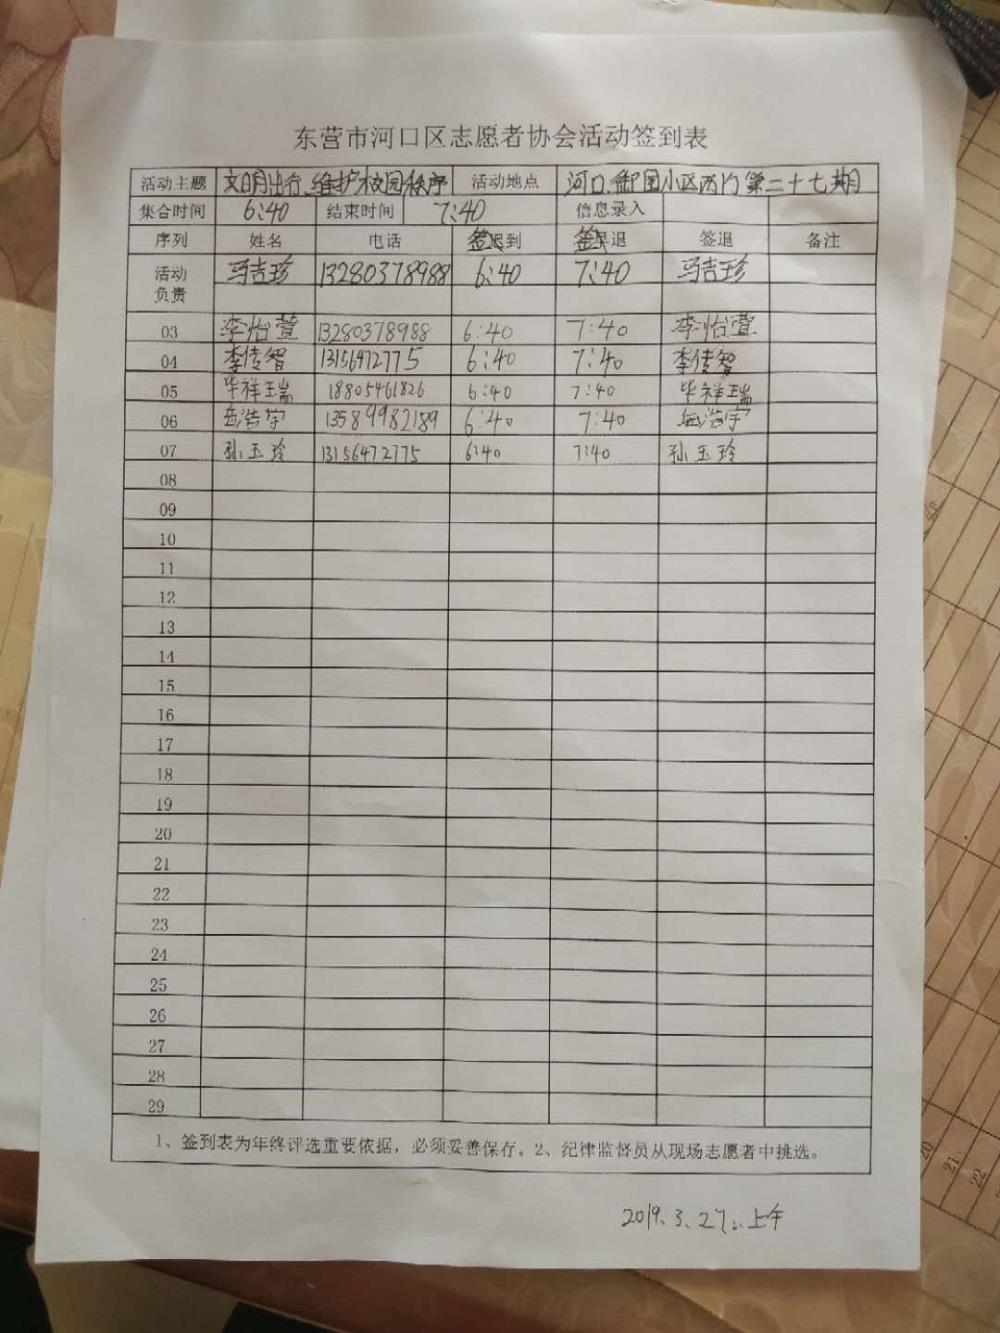 东营市河口区志愿者协会活动签到表
活动主题 文明出行、维护校园秩序 活动地点 河口御园小区西门第二十七期
集合时间 6:40 结束时间 7:40 信息录入
序列 姓名 电话 签到 签退 签退 备注
活动负责 马吉珍 13280378988 6:40 7:40 马吉珍
03 李怡萱 13280378988 6:40 7:40 李怡萱
04 李传智 13156472775 6:40 7:40 李传智
05 毕祥瑞 18805461826 6:40 7:40 毕祥瑞
06 岳浩宇 13589982189 6:40 7:40 岳浩宇
07 孙玉玲 13156472775 6:40 7:40 孙玉玲
08
09
10
11
12
13
14
15
16
17
18
19
20
21
22
23
24
25
26
27
28
29
1、签到表为年终评选重要依据，必须妥善保存。2、纪律监督员从现场志愿者中挑选。
2019.3.27..上午
20
21
22